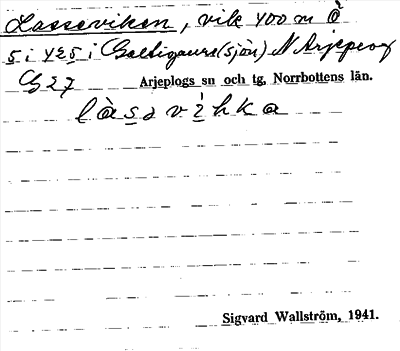 Lasseviken, vik 400 m Ö
5 i 425 i Galtigaure (sjön) N Arjeplog
G 27 Arjeplogs sn och tg, Norrbottens län.
làsavìhka
Sigvard Wallström, 1941.